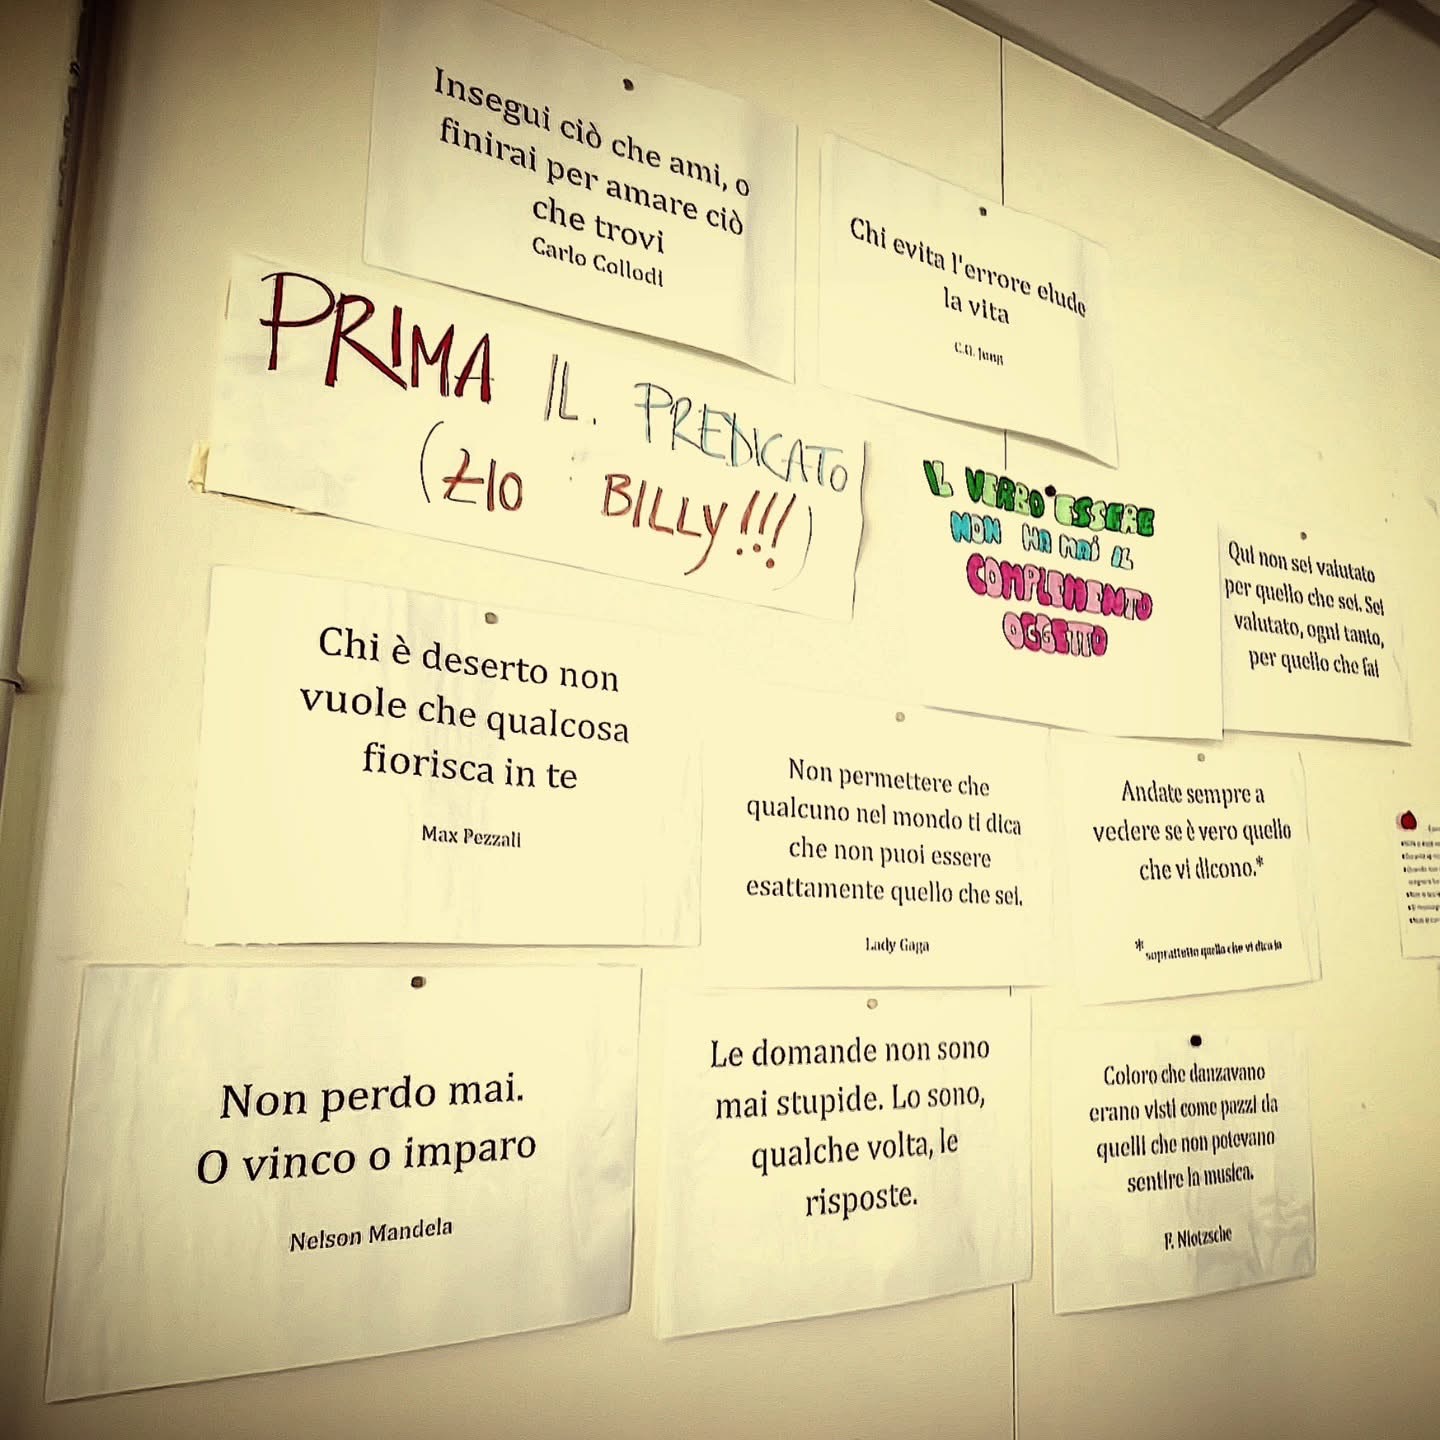 Insegui ciò che ami, o
finirai per amare ciò
che trovi
Carlo Collodi
Chi evita l'errore elude
la vita
C.G. Jung
PRIMA IL PREDICATO
(ZIO BILLY!!!)
IL VERBO ESSERE
NON HA MAI IL
COMPLEMENTO
OGGETTO
Qui non sei valutato
per quello che sei. Sei
valutato, ogni tanto,
per quello che fai
Chi è deserto non
vuole che qualcosa
fiorisca in te
Max Pezzali
Non permettere che
qualcuno nel mondo ti dica
che non puoi essere
esattamente quello che sei.
Lady Gaga
Andate sempre a
vedere se è vero quello
che vi dicono.*
*soprattutto quello che vi dico io
Non perdo mai.
O vinco o imparo
Nelson Mandela
Le domande non sono
mai stupide. Lo sono,
qualche volta, le
risposte.
Coloro che danzavano
erano visti come pazzi da
quelli che non potevano
sentire la musica.
F. Nietzsche